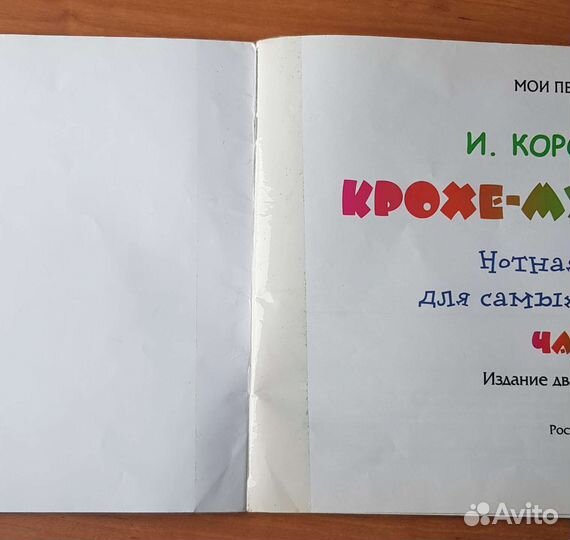 МОИ ПЕ
И. КОРО
КРОХЕ-МУ
Нотная
для самых
ЧА
Издание два
Рос
Avito